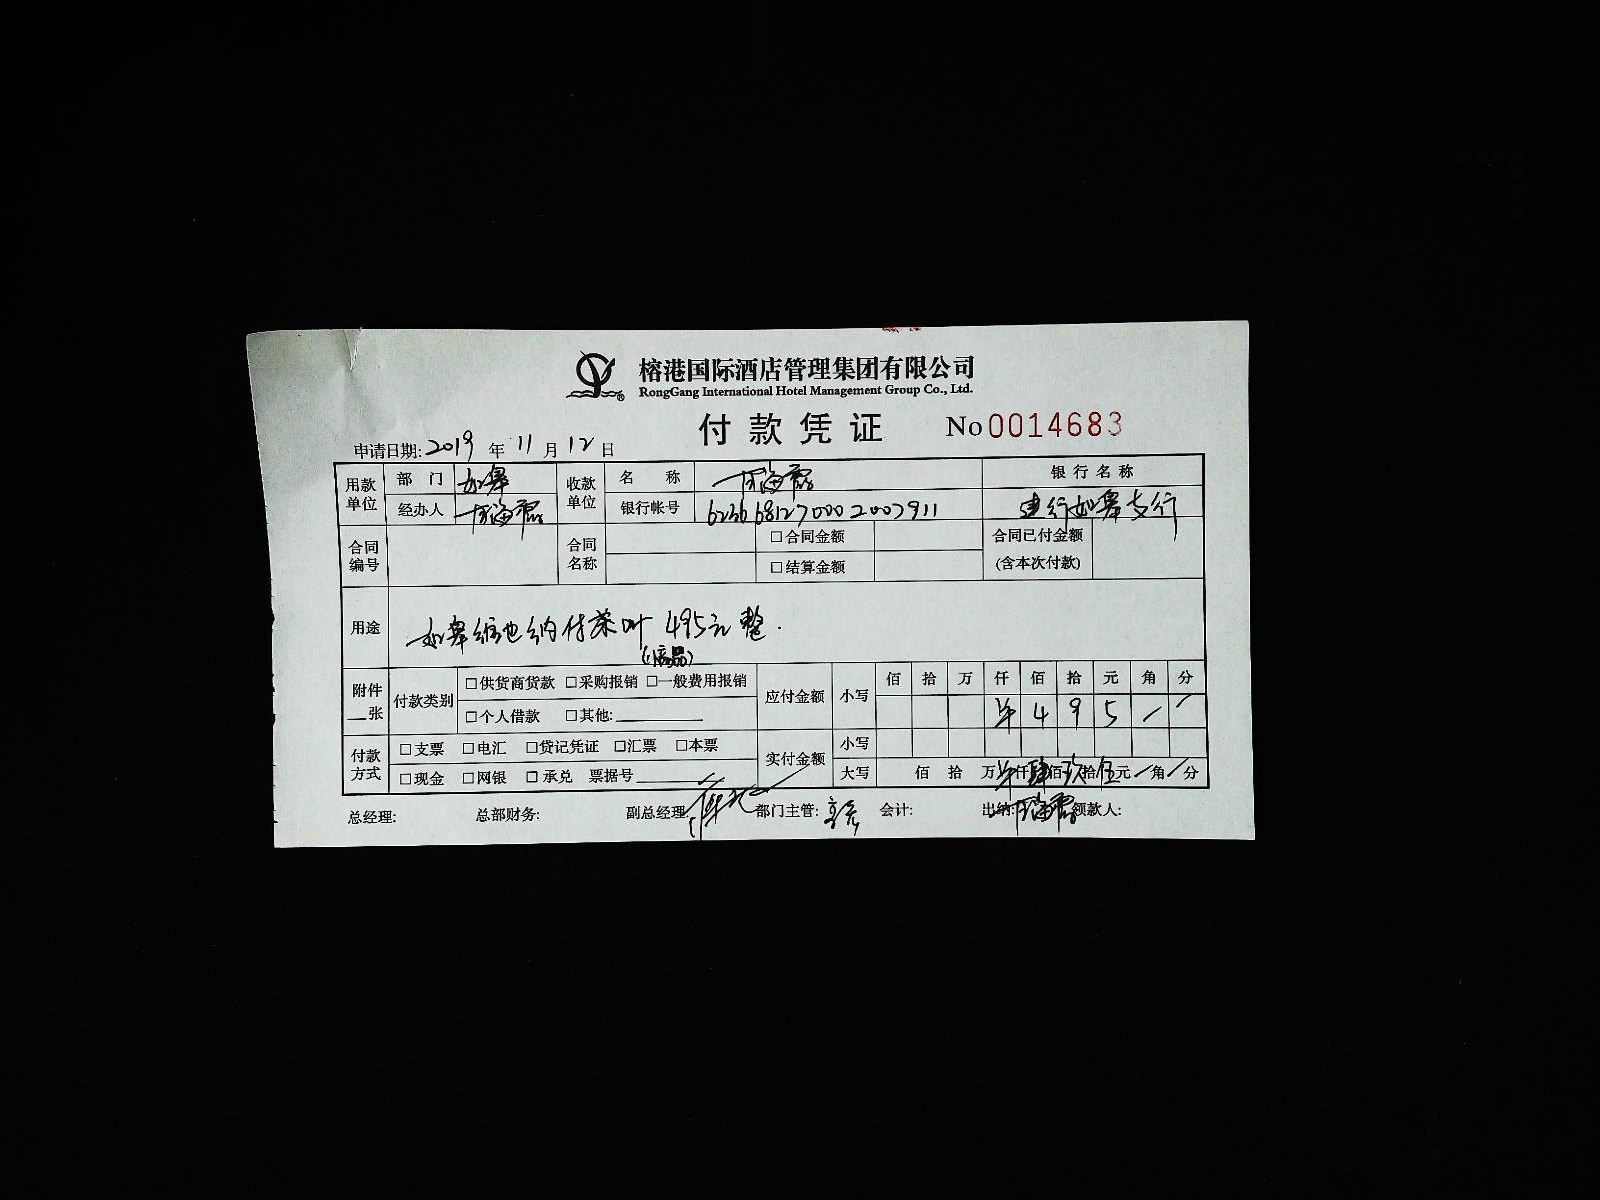 榕港国际酒店管理集团有限公司
RongGang International Hotel Management Group Co., Ltd.
付款凭证 No 0014683
申请日期: 2019 年 11 月 12 日
用款单位 部门 如皋 收款单位 名称 银行名称
经办人 银行帐号 6236681270002007911 建行如皋支行
合同编号 合同名称 □合同金额 合同已付金额
□结算金额 (含本次付款)
用途 如皋维也纳付茶叶 495元整.
附件 张 付款类别 □供货商货款 □采购报销 □一般费用报销 应付金额 小写 佰 拾 万 仟 佰 拾 元 角 分
□个人借款 □其他: ¥ 4 9 5 / /
付款方式 □支票 □电汇 □贷记凭证 □汇票 □本票 实付金额 小写
□现金 □网银 □承兑 票据号 大写 佰 拾 万 ¥ 仟 肆 佰 玖 拾 伍 元 / 角 / 分
总经理: 总部财务: 副总经理: 部门主管: 会计: 出纳: 领款人: